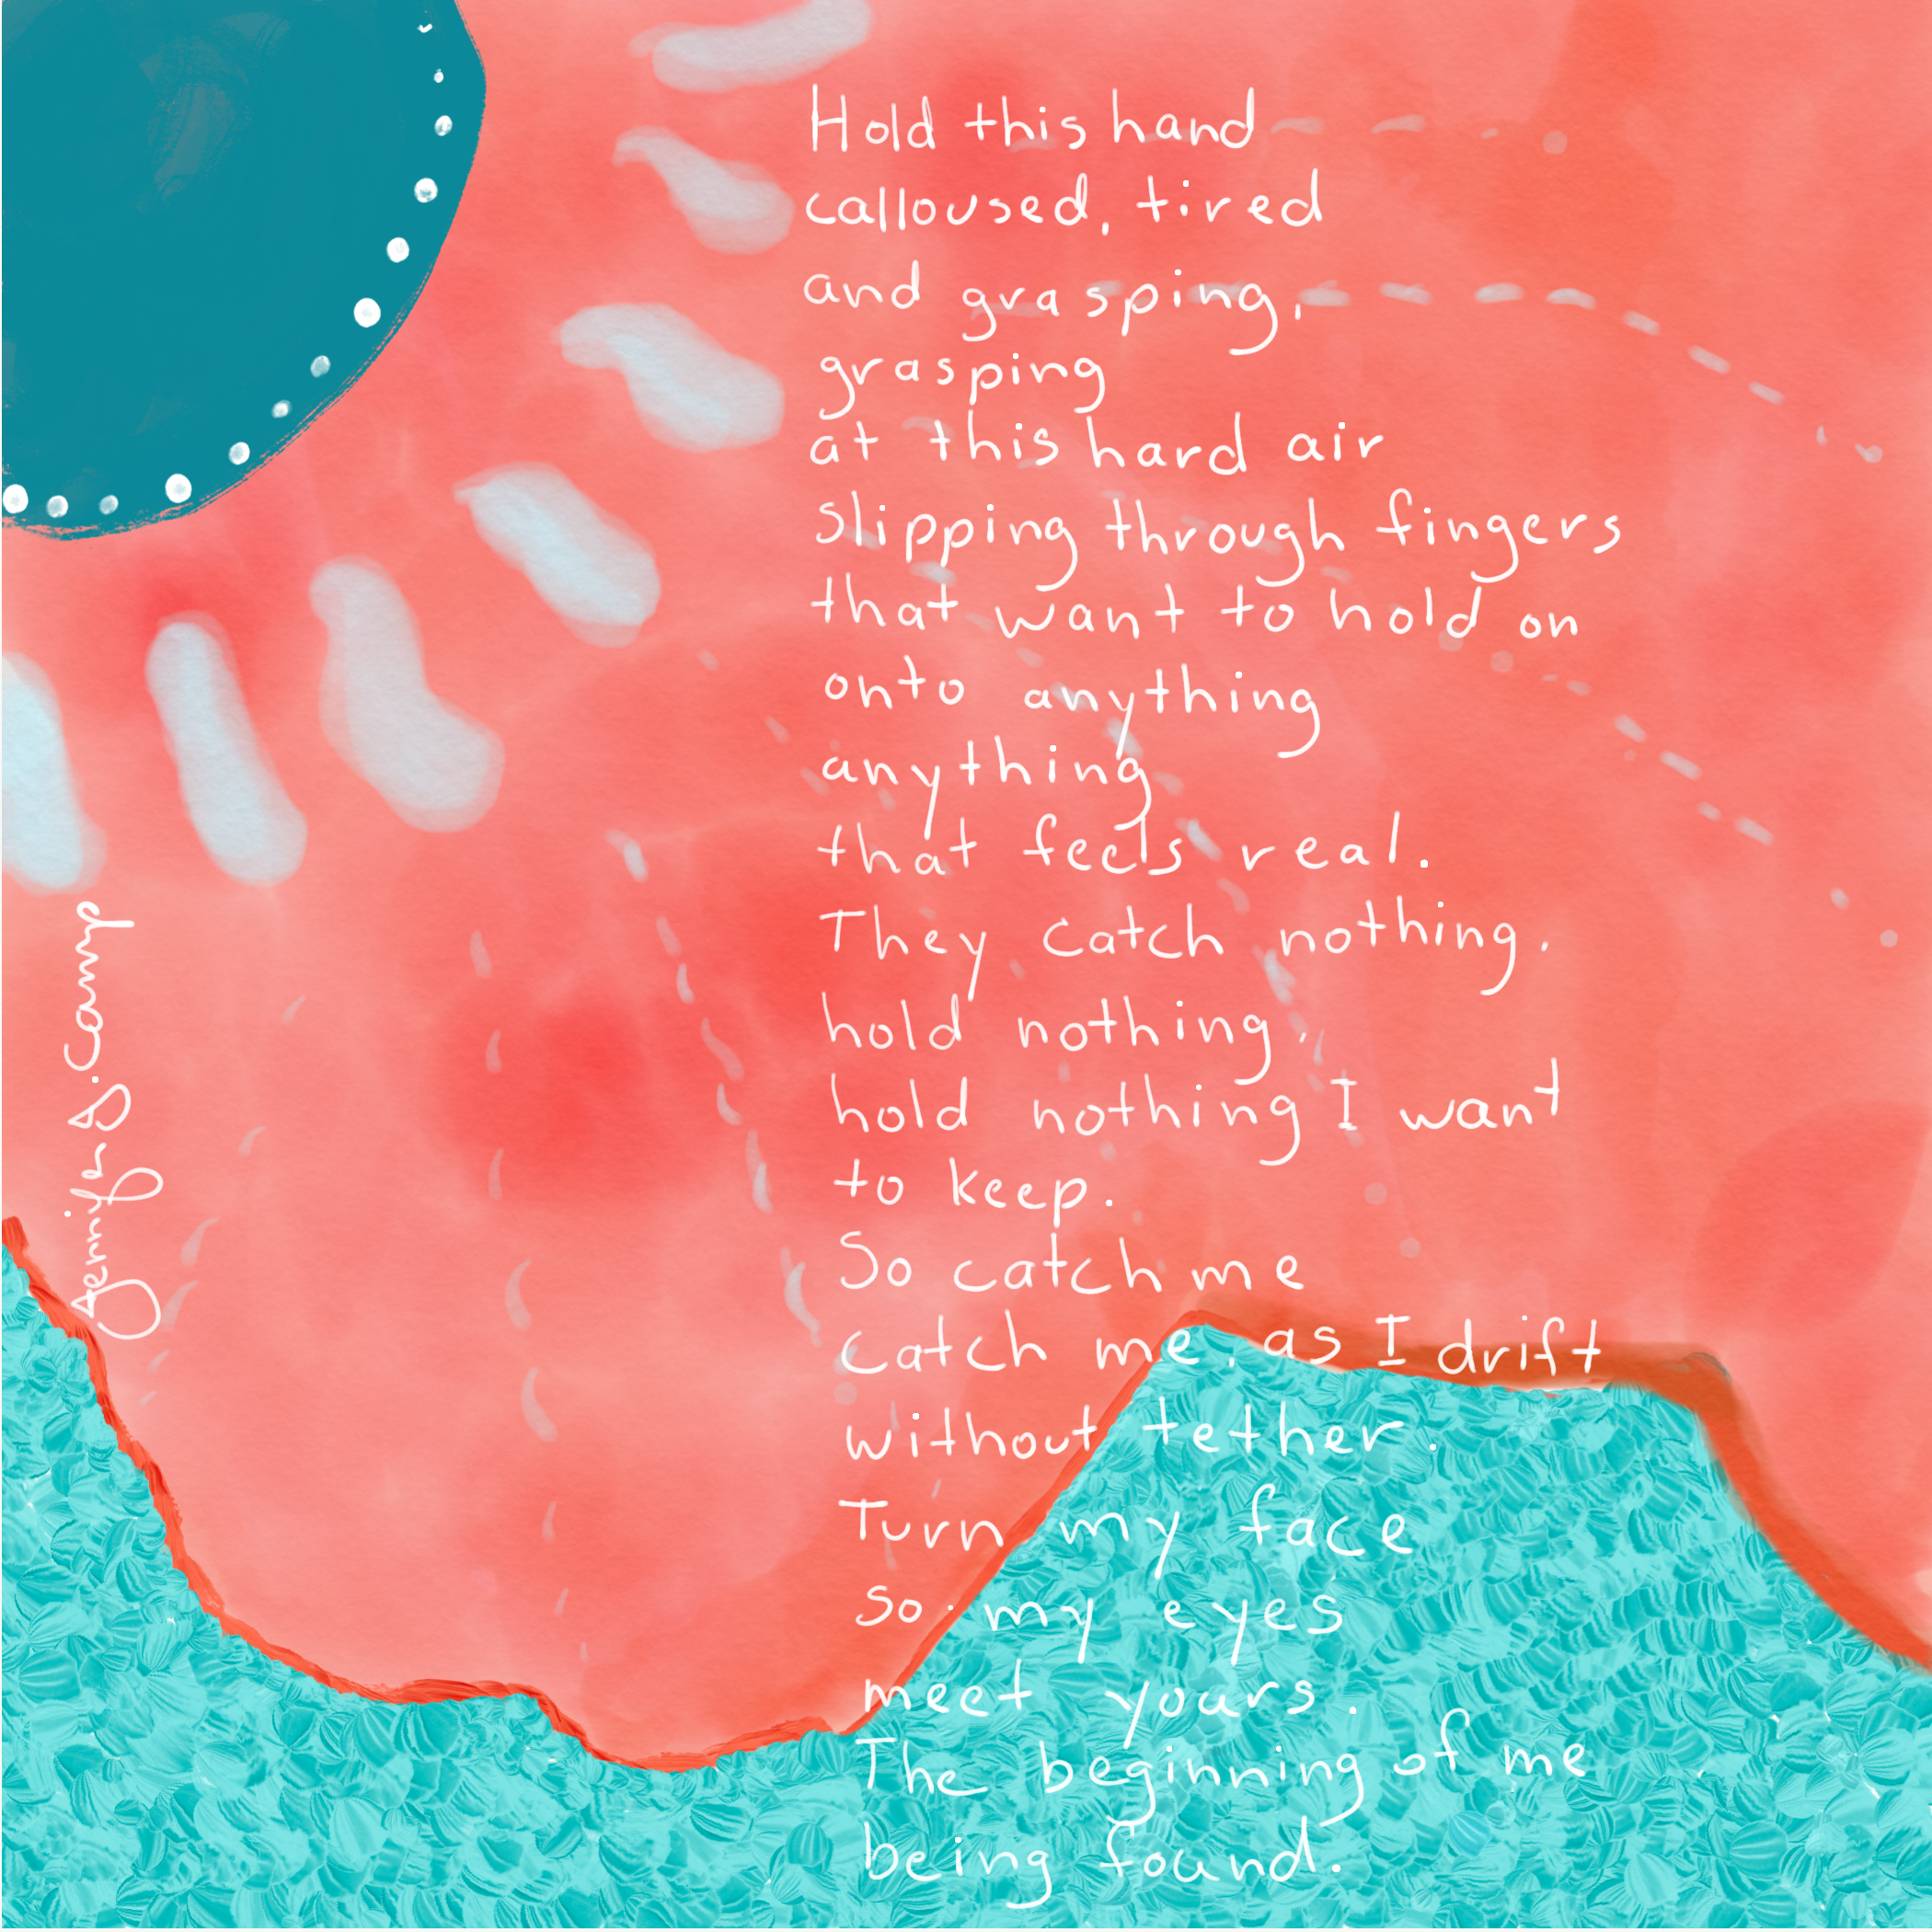 Hold this hand
calloused, tired
and grasping,
grasping
at this hard air
slipping through fingers
that want to hold on
onto anything
anything
that feels real.
They catch nothing.
hold nothing,
hold nothing I want
to keep.
So catch me
catch me, as I drift
without tether.
Turn my face
so my eyes
meet yours.
The beginning of me
being found.
Jennifer J. Camp